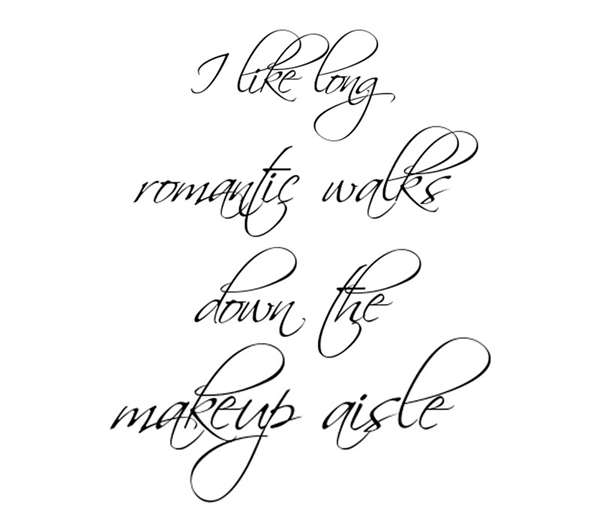 I like long
romantic walks
down the
makeup aisle